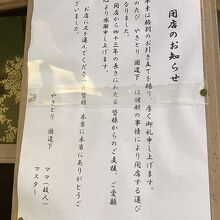 閉店のお知らせ
平素は格別のお引き立てを賜り、厚く御礼申し上げます。
このたび、やきとり 園道下 は諸般の事情により閉店する運び
となりました。
開店から四十三年の長きにわたる皆様からのご支援、ご愛顧
心より感謝申し上げます。
お店に足を運んでくださった皆様、本当に本当にありがとうご
ざいました。
やきとり 園道下
ママ（故人）
マスター